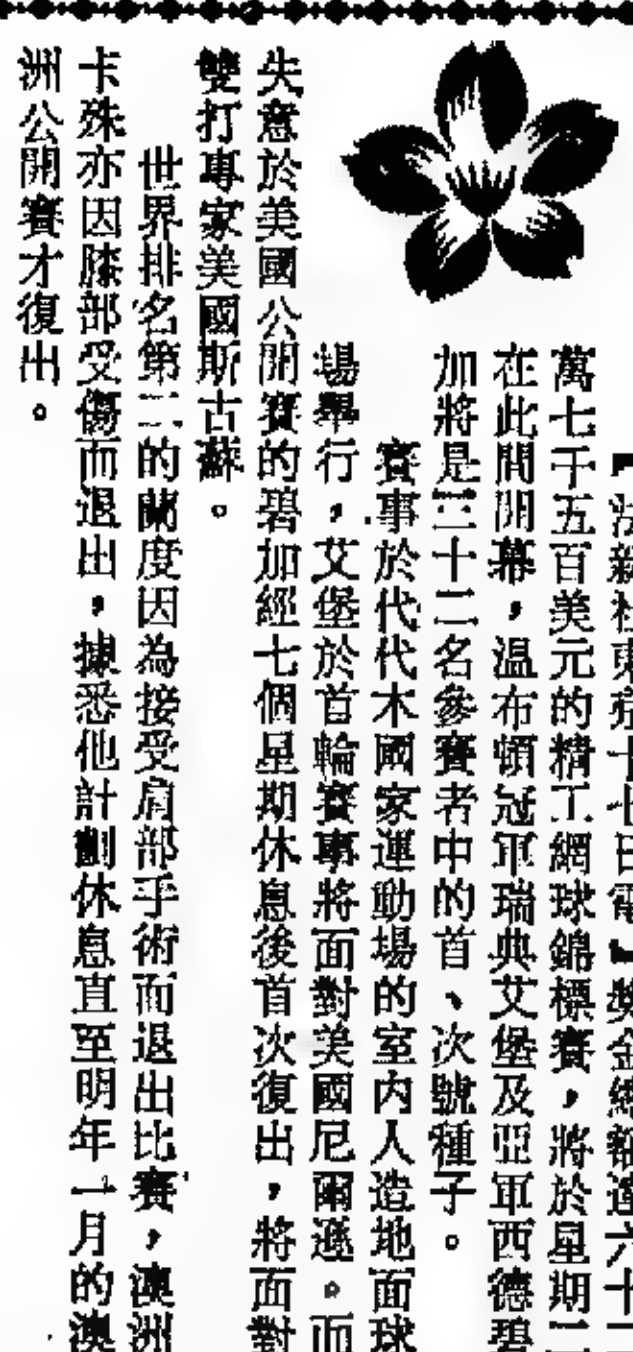 【法新社東京十七日電】獎金總額達六十二
萬七千五百美元的精工網球錦標賽，將於星期二
在此間開幕，溫布頓冠軍瑞典艾堡及亞軍西德碧
加將是三十二名參賽者中的首、次號種子。
賽事於代代木國家運動場的室內人造地面球
場舉行，艾堡於首輪賽事將面對美國尼爾遜。而
失意於美國公開賽的碧加經七個星期休息後首次復出，將面對
雙打專家美國斯古蘇。
世界排名第二的蘭度因為接受肩部手術而退出比賽，澳洲
卡殊亦因膝部受傷而退出，據悉他計劃休息直至明年一月的澳
洲公開賽才復出。